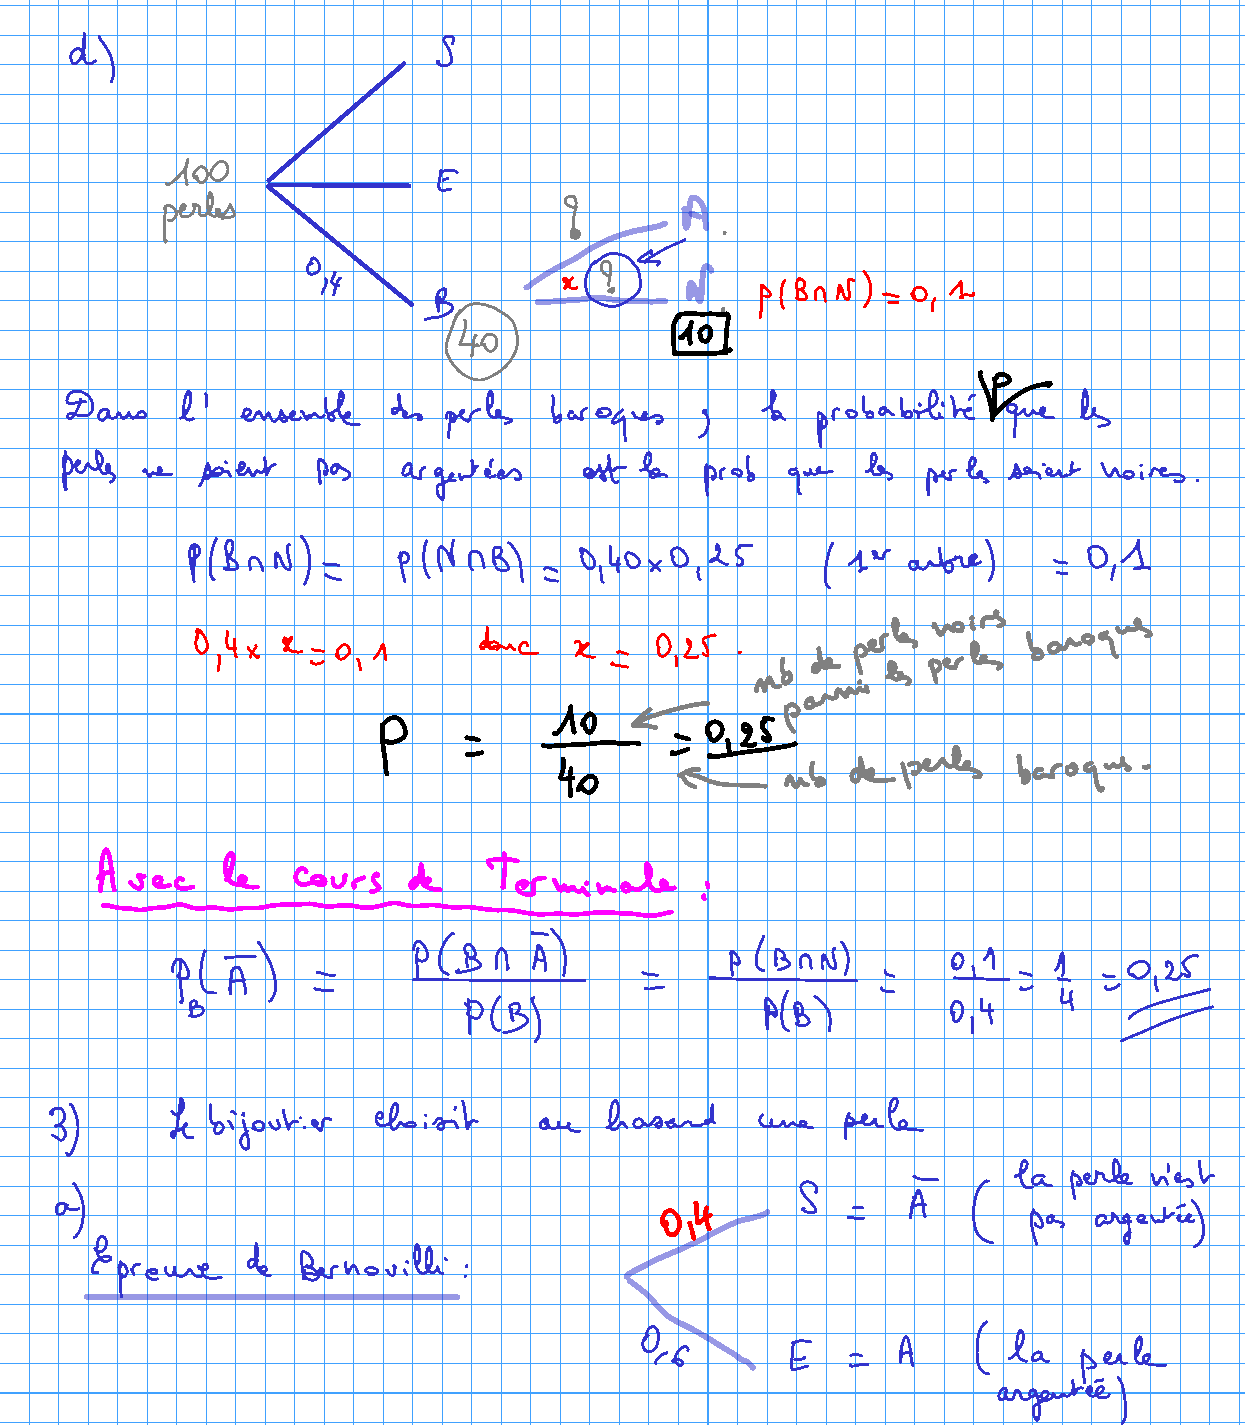 d)
S
100
perles
E
0,4
B
40
?
A
x ?
N
10
p(B∩N) = 0,1
Dans l'ensemble des perles baroques, la probabilité P que les
perles ne soient pas argentées est la prob que les perles soient noires.
P(B∩N) = p(N∩B) = 0,40 x 0,25 (1er arbre) = 0,1
0,4 x x = 0,1 donc x = 0,25.
nb de perles noirs
parmi les perles baroques
P = 10/40 = 0,25
nb de perles baroques.
Avec le cours de Terminale :
P_B(Ā) = P(B∩Ā)/P(B) = p(B∩N)/P(B) = 0,1/0,4 = 1/4 = 0,25
3) Le bijoutier choisit au hasard une perle
a)
Epreuve de Bernouilli :
0,4
S = Ā (la perle n'est
pas argentée)
0,6
E = A (la perle
argentée)